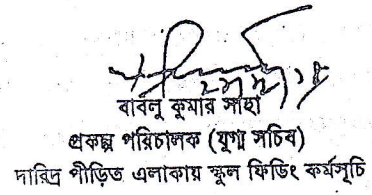 বাবলু কুমার সাহা
প্রকল্প পরিচালক (যুগ্ম সচিব)
দারিদ্র পীড়িত এলাকায় স্কুল ফিডিং কর্মসূচি